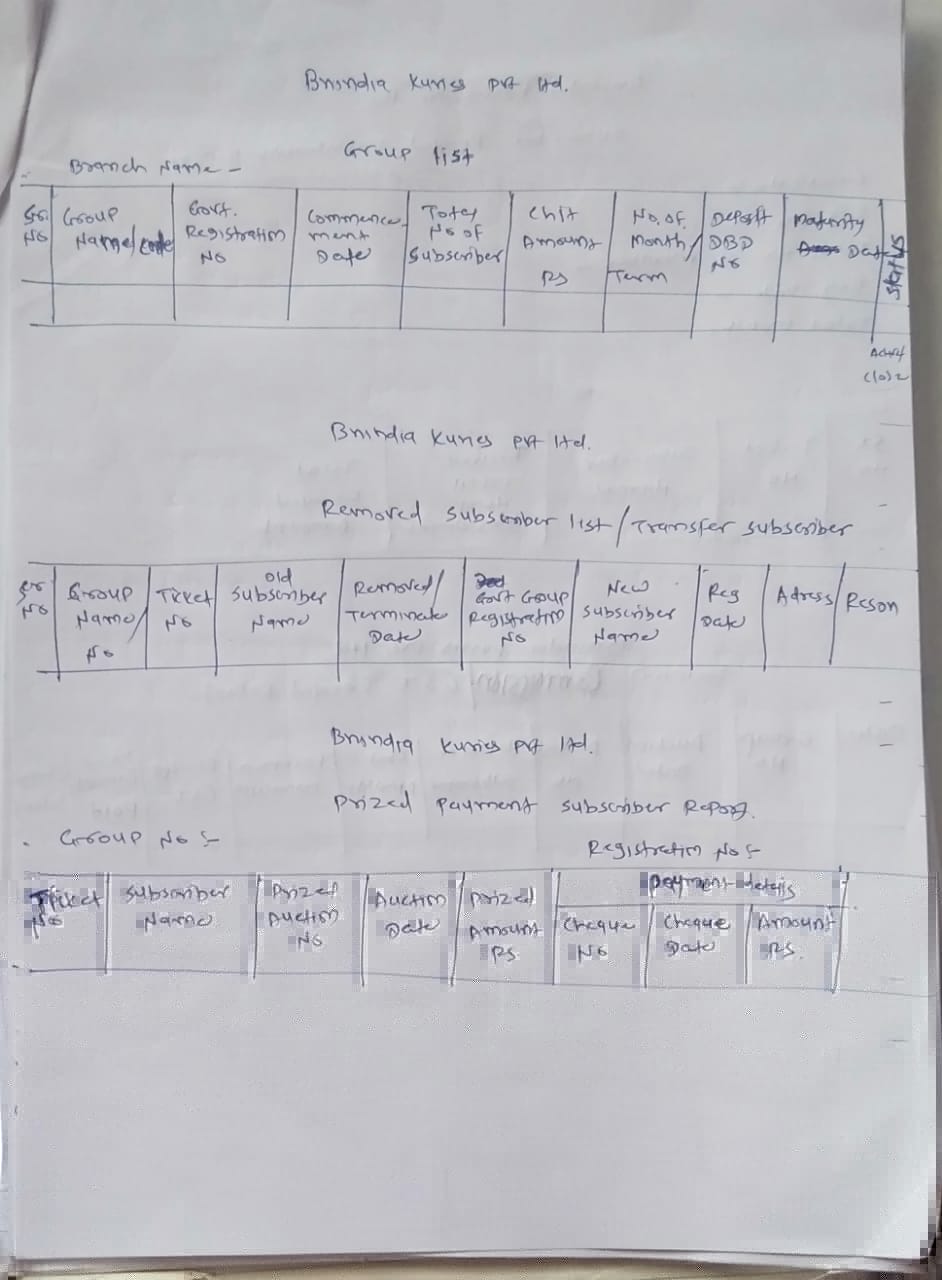 Bnindia Kuries pvt ltd.
Group list
Branch Name -
Sr. No | Group Name/code | Govt. Registration No | Commencement Date | Total No of Subscriber | Chit Amount Rs | No. of Month/Term | Deposit DBD No | Maturity Date | Status
Bnindia Kuries pvt ltd.
Removed Subscriber list/Transfer subscriber
Sr No | Group Name/No | Ticket No | old Subscriber Name | Removed/Terminate Date | Govt Group Registration No | New Subscriber Name | Reg Date | Adress | Reson
Bnindia Kuries pvt ltd.
Prized payment subscriber Report.
Group No :-
Registration No :-
Ticket No | Subscriber Name | Prized Auction No | Auction Date | Prized Amount Rs | payment details
Cheque No | Cheque Date | Amount Rs.